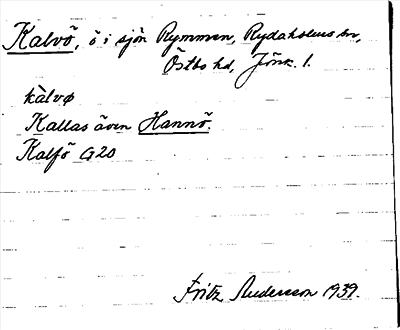 Kalvö, ö i sjön Rymmen, Rydaholms sn,
Östbo hd, Jönk. l.
kàlvø
Kallas även Hannö.
Kalfö G20
Fritz Andersson 1939.